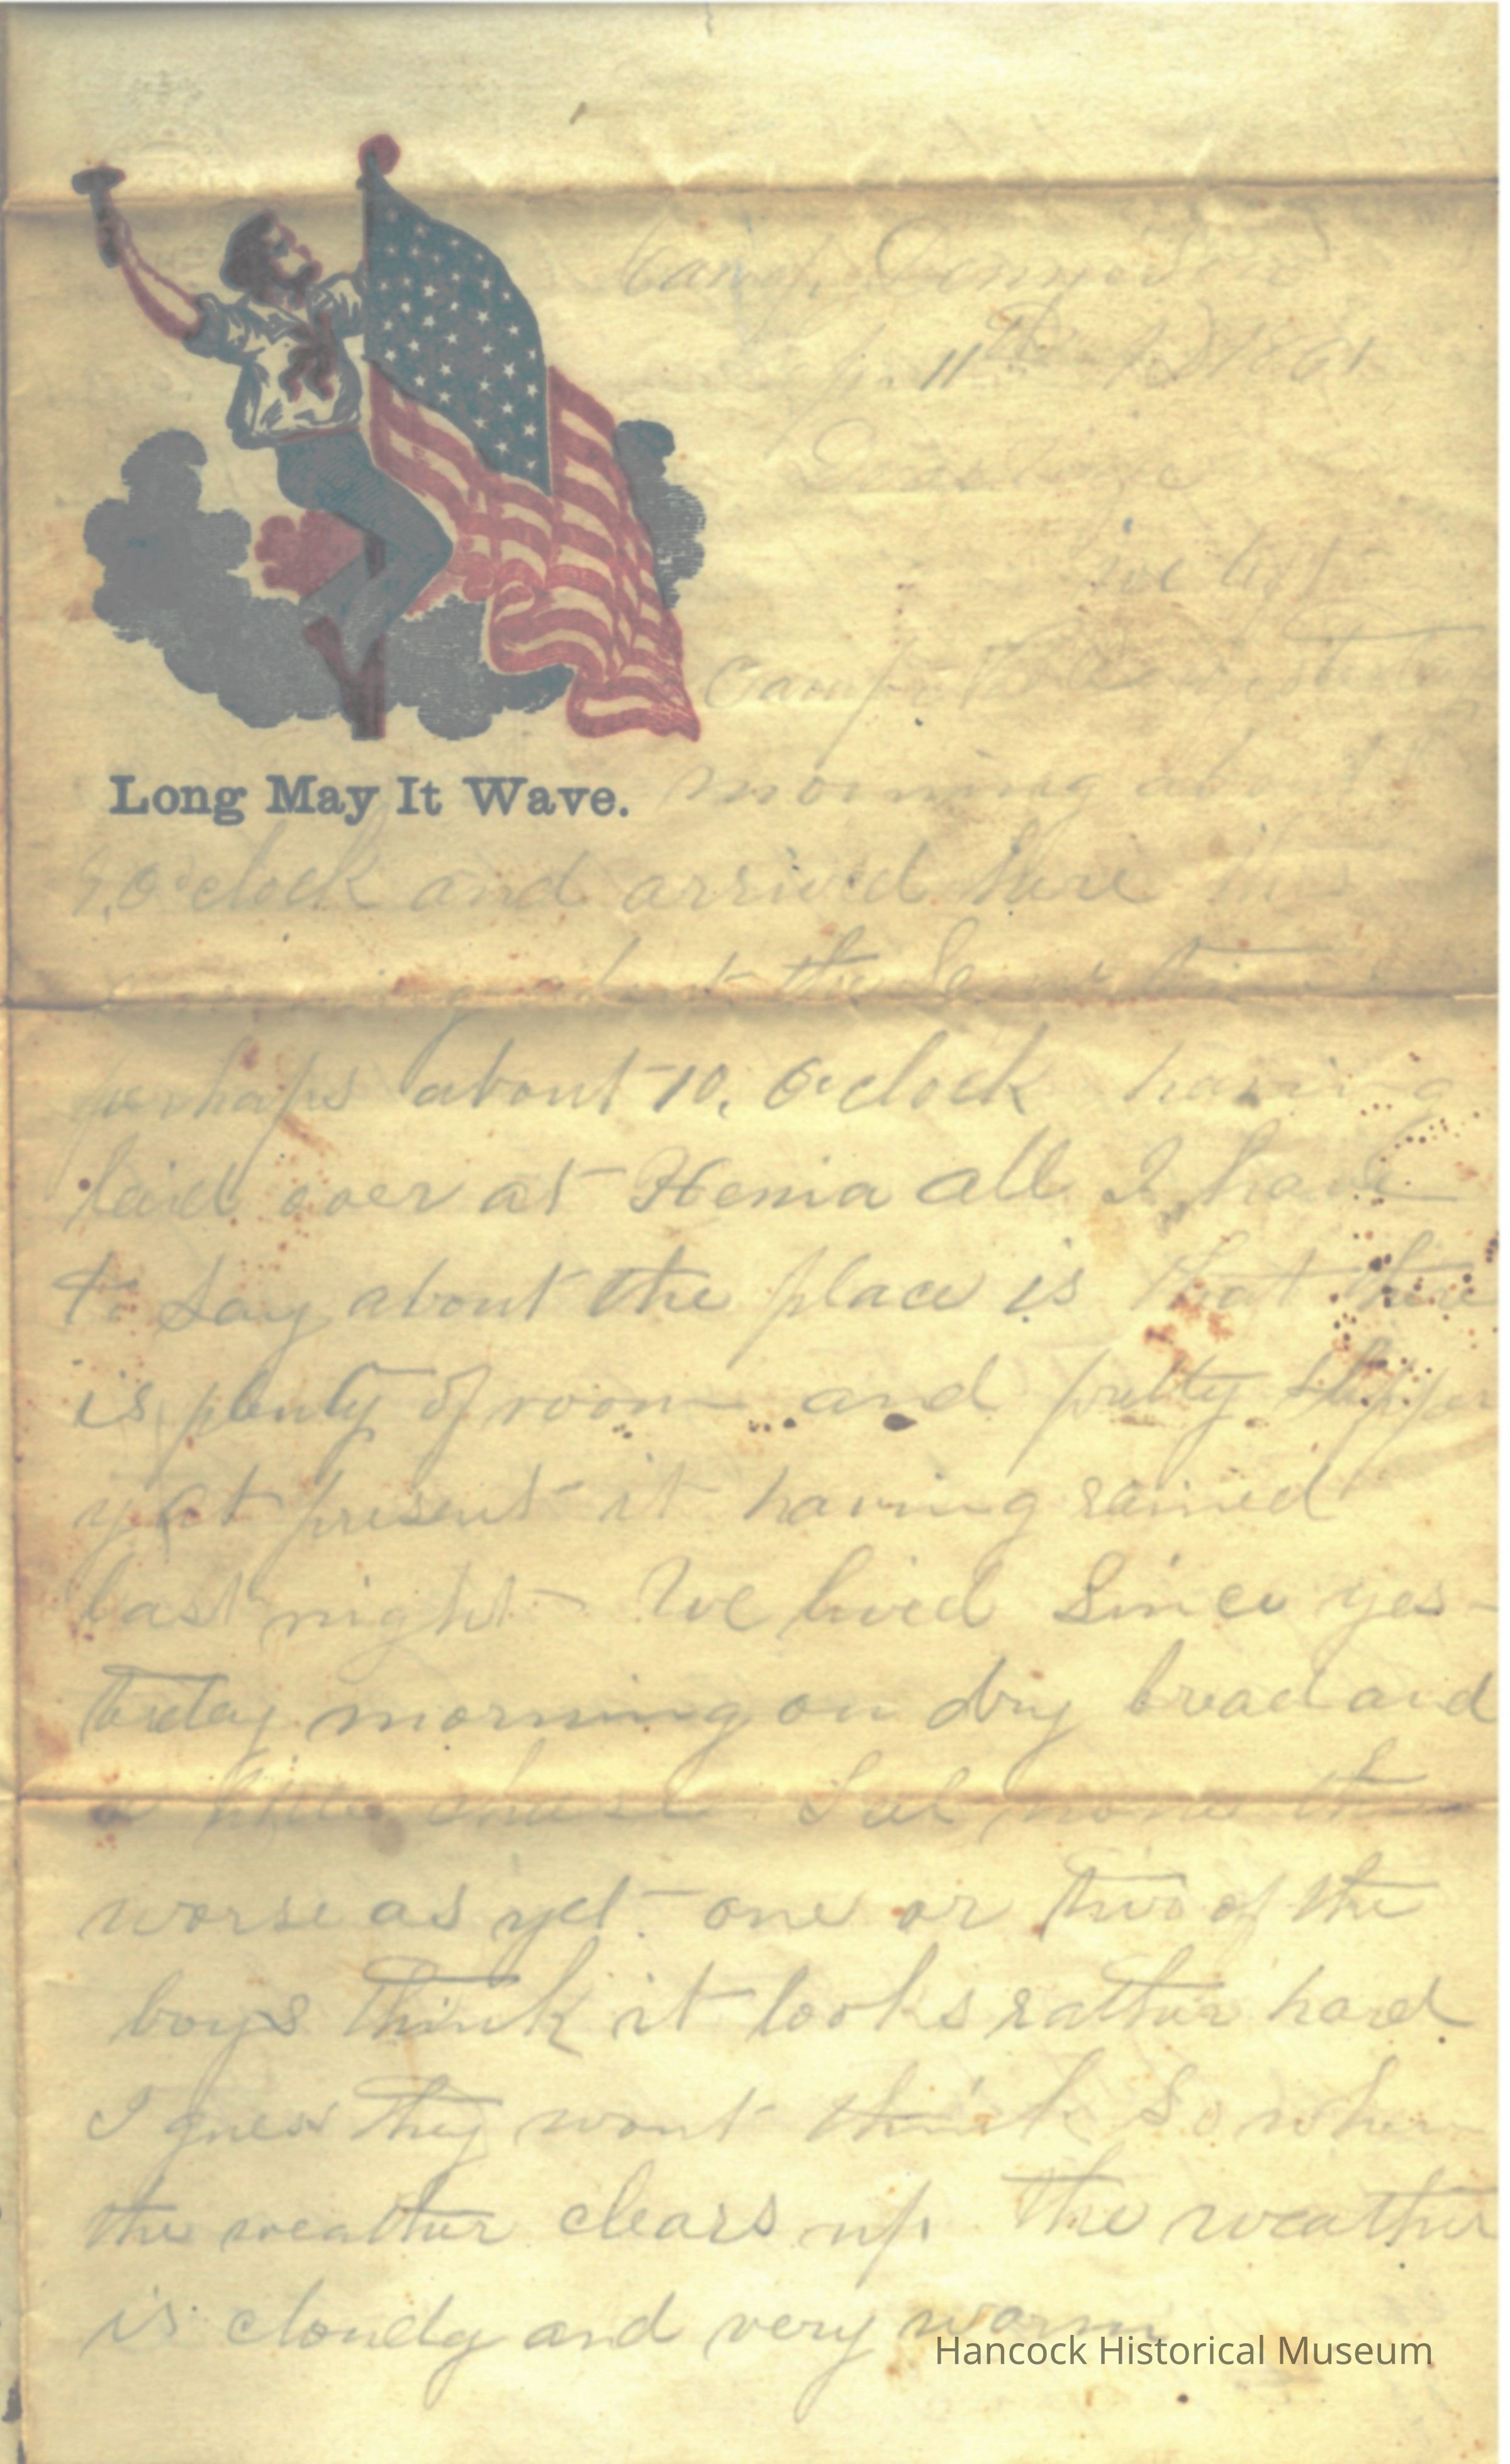 Camp Dennison
11th AD 1861
we left
Camp yesterday
Long May It Wave.
morning about
9,O'clock and arrived here this
about the same time
perhaps about 10, O'clock having
laid over at Xenia all I have
to say about the place is that there
is plenty of room and pretty slipper
y at present it having rained
last night - We lived Since yes-
terday morning on dry bread and
a little cheese feel none the
worse as yet - one or two of the
boys think it looks rather hard.
I guess they wont think So when
the weather clears up. The weather
is cloudy and very warm
Hancock Historical Museum